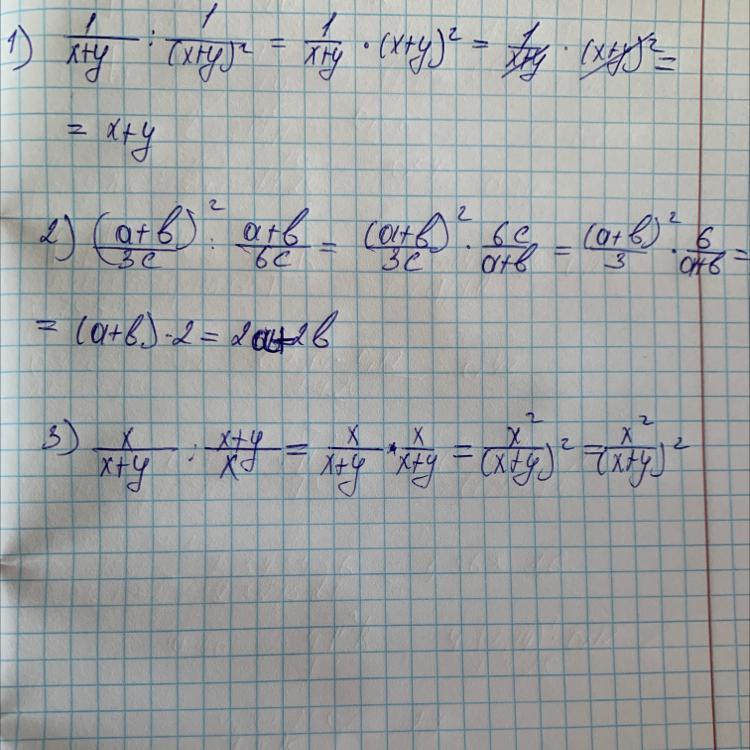 1) 1/(x+y) : 1/(x+y)² = 1/(x+y) · (x+y)² = 1/(x+y) · (x+y)² =
= x+y
2) (a+b)²/3c : (a+b)/6c = (a+b)²/3c · 6c/(a+b) = (a+b)²/3 · 6/(a+b) =
= (a+b)·2 = 2a+2b
3) x/(x+y) : (x+y)/x = x/(x+y) · x/(x+y) = x²/(x+y)² = x²/(x+y)²